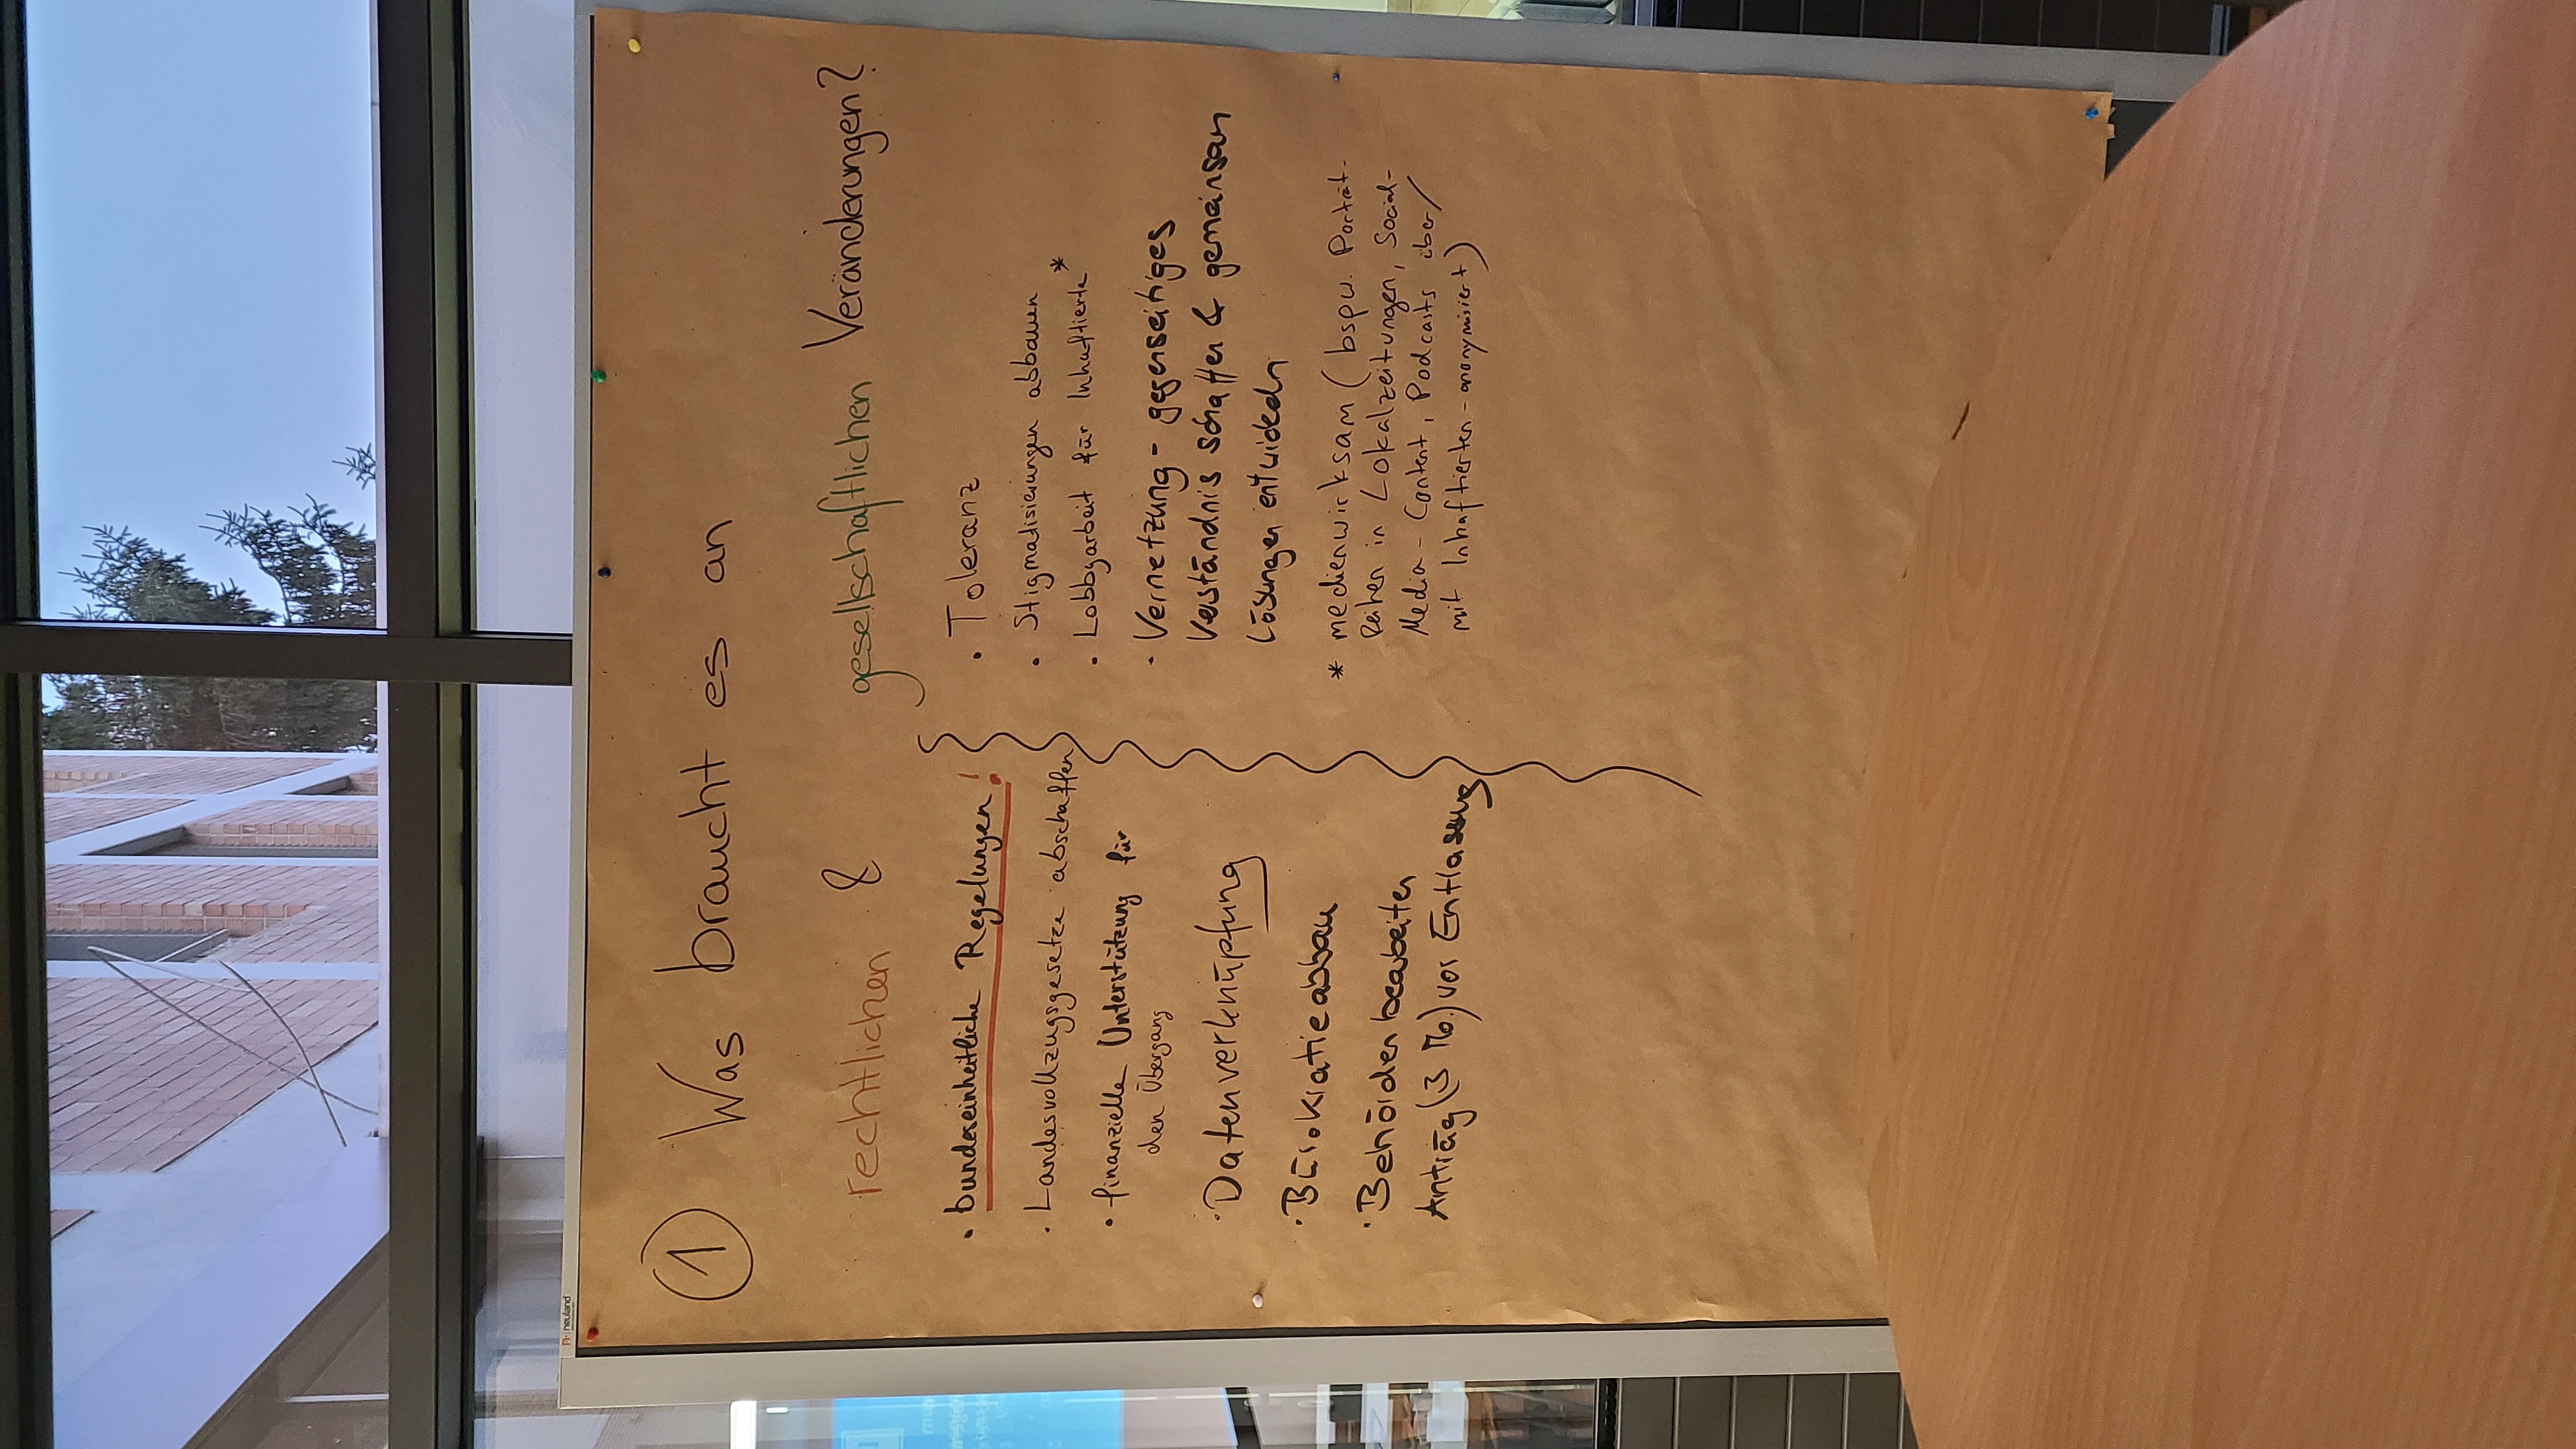 ① Was braucht es an
rechtlichen & gesellschaftlichen Veränderungen?
• bundeseinheitliche Regelungen!
• Landesvollzugsgesetze abschaffen
• finanzielle Unterstützung für
den Übergang
• Datenverknüpfung
• Bürokratieabbau
• Behörden bearbeiten
Anträg (3 Mo.) vor Entlassung
• Toleranz
• Stigmatisierungen abbauen
• Lobbyarbeit für Inhaftierte*
• Vernetzung - gegenseitiges
Verständnis schaffen & gemeinsam
Lösungen entwickeln
* medienwirksam (bspw. Porträt-
Reihen in Lokalzeitungen, Social-
Media-Content, Podcasts über/
mit Inhaftierten - anonymisiert)
neuland